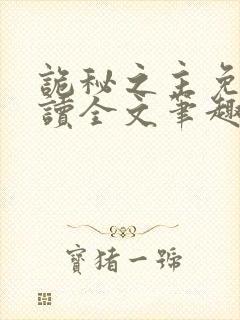 詭秘之主免
讀全文筆趣
寶豬一號